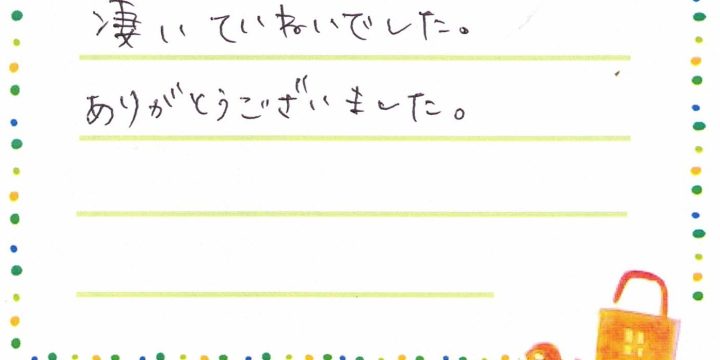 凄いていねいでした。
ありがとうございました。